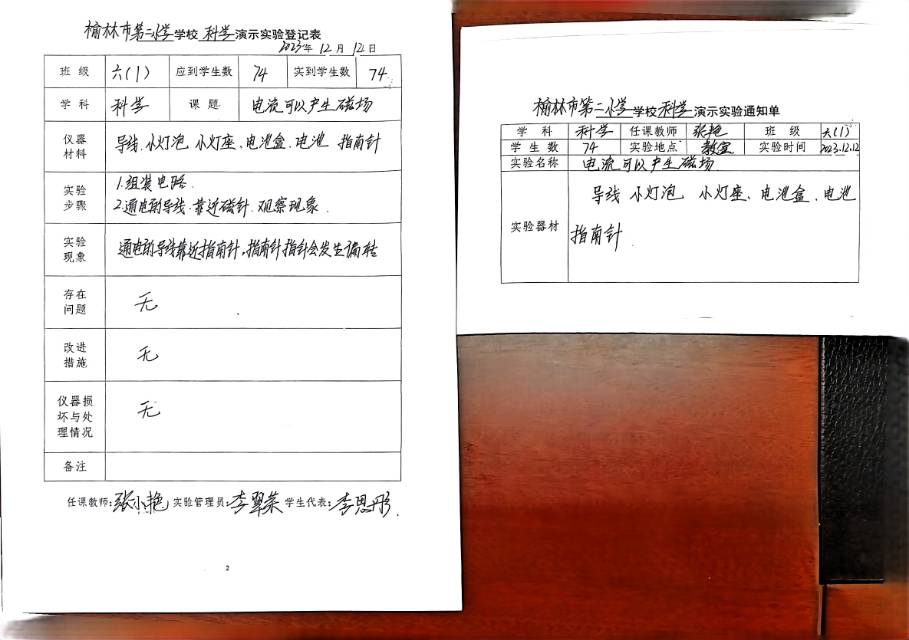 榆林市第二小学学校科学演示实验登记表
2023年12月12日
班级 六(1) 应到学生数 74 实到学生数 74
学科 科学 课题 电流可以产生磁场
仪器材料 导线、小灯泡、小灯座、电池盒、电池 指南针
实验步骤 1.组装电路.
2.通电的导线.靠近磁针.观察现象.
实验现象 通电的导线靠近指南针,指南针指针会发生偏转
存在问题 无
改进措施 无
仪器损坏与处理情况 无
备注
任课教师:张小艳 实验管理员:李翠荣 学生代表:李思彤
2
榆林市第二小学学校科学演示实验通知单
学科 科学 任课教师 张艳 班级 六(1)
学生数 74 实验地点 教室 实验时间 2023.12.12
实验名称 电流可以产生磁场
实验器材 导线 小灯泡 小灯座、电池盒、电池
指南针